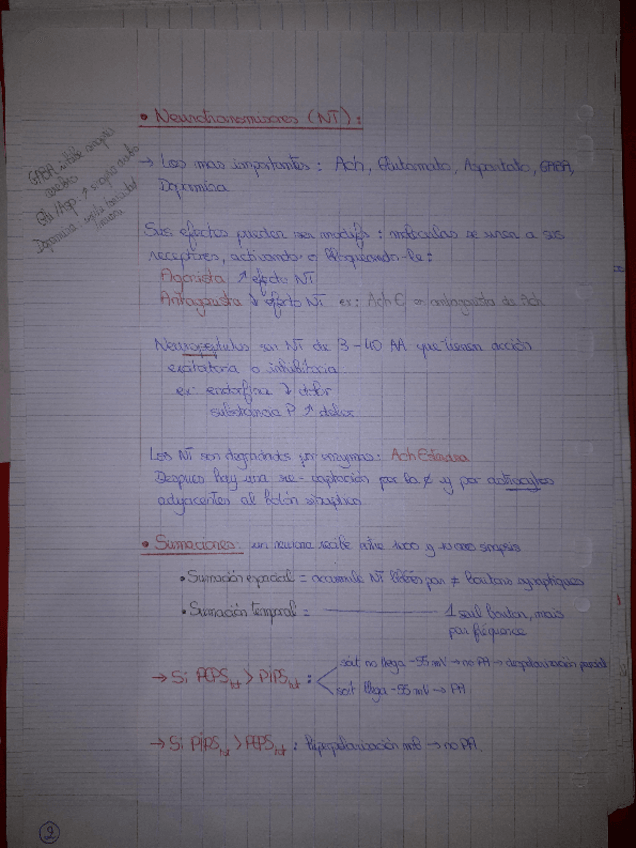 • Neurotransmisores (NT) :
GABA : inhibe sinapsis
cerebro
Glu / Asp : ↗ sinapsis
Dopamina :
→ Los mas importantes : Ach, Glutamato, Aspartato, GABA,
Dopamina
Sus efectos pueden ser modifs : moleculas se unen a sus
receptores, activando o bloqueando-los :
Agonista ↗ efecto NT
Antagonista ↓ efecto NT ex : AchE antagonista de Ach
Neuropeptidos son NT de 3-40 AA que tienen acción
excitatoria o inhibitoria
ex : endorfina ↓ dolor
substancia P ↗ dolor
Los NT son degradados por enzymas :
Despues hay una re-captación por la ≠ y por astrocytos
adyacentes al botón sinaptico
• Sumaciones : un neurona recibe entre 1000 y 10 000 sinapsis
• Sumación espacial = accumulé NT libérés par ≠ boutons synaptiques
• Sumación temporal = ——— 1 seul bouton, mais
par fréquence
→ Si PEPS tot > PIPS tot :
soit no llega -55 mV → no PA → despolarización parcial
soit llega -55 mV → PA
→ Si PIPS tot > PEPS tot : Hiperpolarización mb → no PA.
2